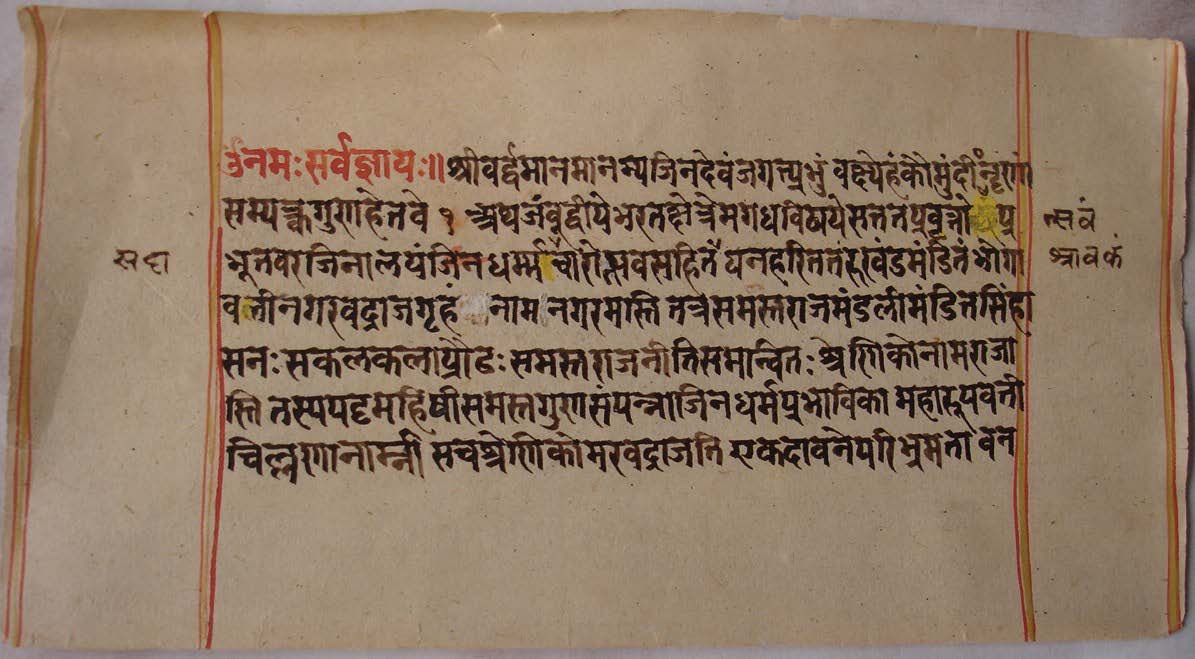 उँनमः सर्वज्ञायः॥ श्रीवर्द्धमानमानम्यजिनदेवंजगत्प्रभुं वक्ष्येहंकौमुंदींनृणां
सम्यक्त्वगुणहेतवे १ अथजंबुद्वीपेभरतक्षेत्रेमगधविषये
भूतवरजिनालयंजिनधर्म्मा सवसहितं धनहरिततरुखंडमंडितंभोगा
वतीनगरवद्राजगृहं नामनगरमास्ति तत्रसमस्तराजमंडलीमंडितसिंहा
सनः सकलकलाप्रौढः समस्तराजनीतिसमान्वितः श्रेणिकोनामराजा
स्ति तस्यपट्टमहिषीसमस्तगुणसंपन्नाजिनधर्मप्रभाविका महारूपवती
चिल्लणानाम्नी सचश्रेणिकोमरवद्राजति एकदावनेपरिभ्रमता वन
श्रावकं